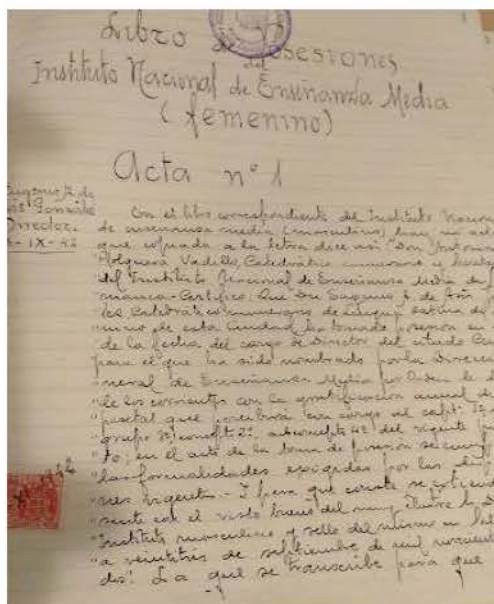 Libro de Posesiones
del
Instituto Nacional de Enseñanza Media
(femenino)
Acta nº 1
Eugenio de
González
Director
IX-42
En el libro correspondiente del Instituto Nacional
de enseñanza media (masculino) hay un acta
que copiada a la letra dice así "Don Antonio
Vadillo, Catedrático numerario y
del Instituto Nacional de Enseñanza Media de
"manca-Certifico: Que Don Eugenio
Catedrático numerario de Lengua Latina
de esta Ciudad, ha tomado posesión en
"de la fecha del cargo de Director del citado
"para el que ha sido nombrado por la Direcc
"neral de Enseñanza Media por Orden de
"de los corrientes con la gratificación anual de
"pesetas que percibirá con cargo al
"grupo concepto 2º subconcepto 4º del vigente
en el acto de la toma de posesión se
"las formalidades exigidas por las
vigentes.- Y para que conste se extiende
con el visto bueno del muy Ilustre
"Instituto masculino y sello del mismo en
"a veintitrés de septiembre de mil
"dos". La que se transcribe para que